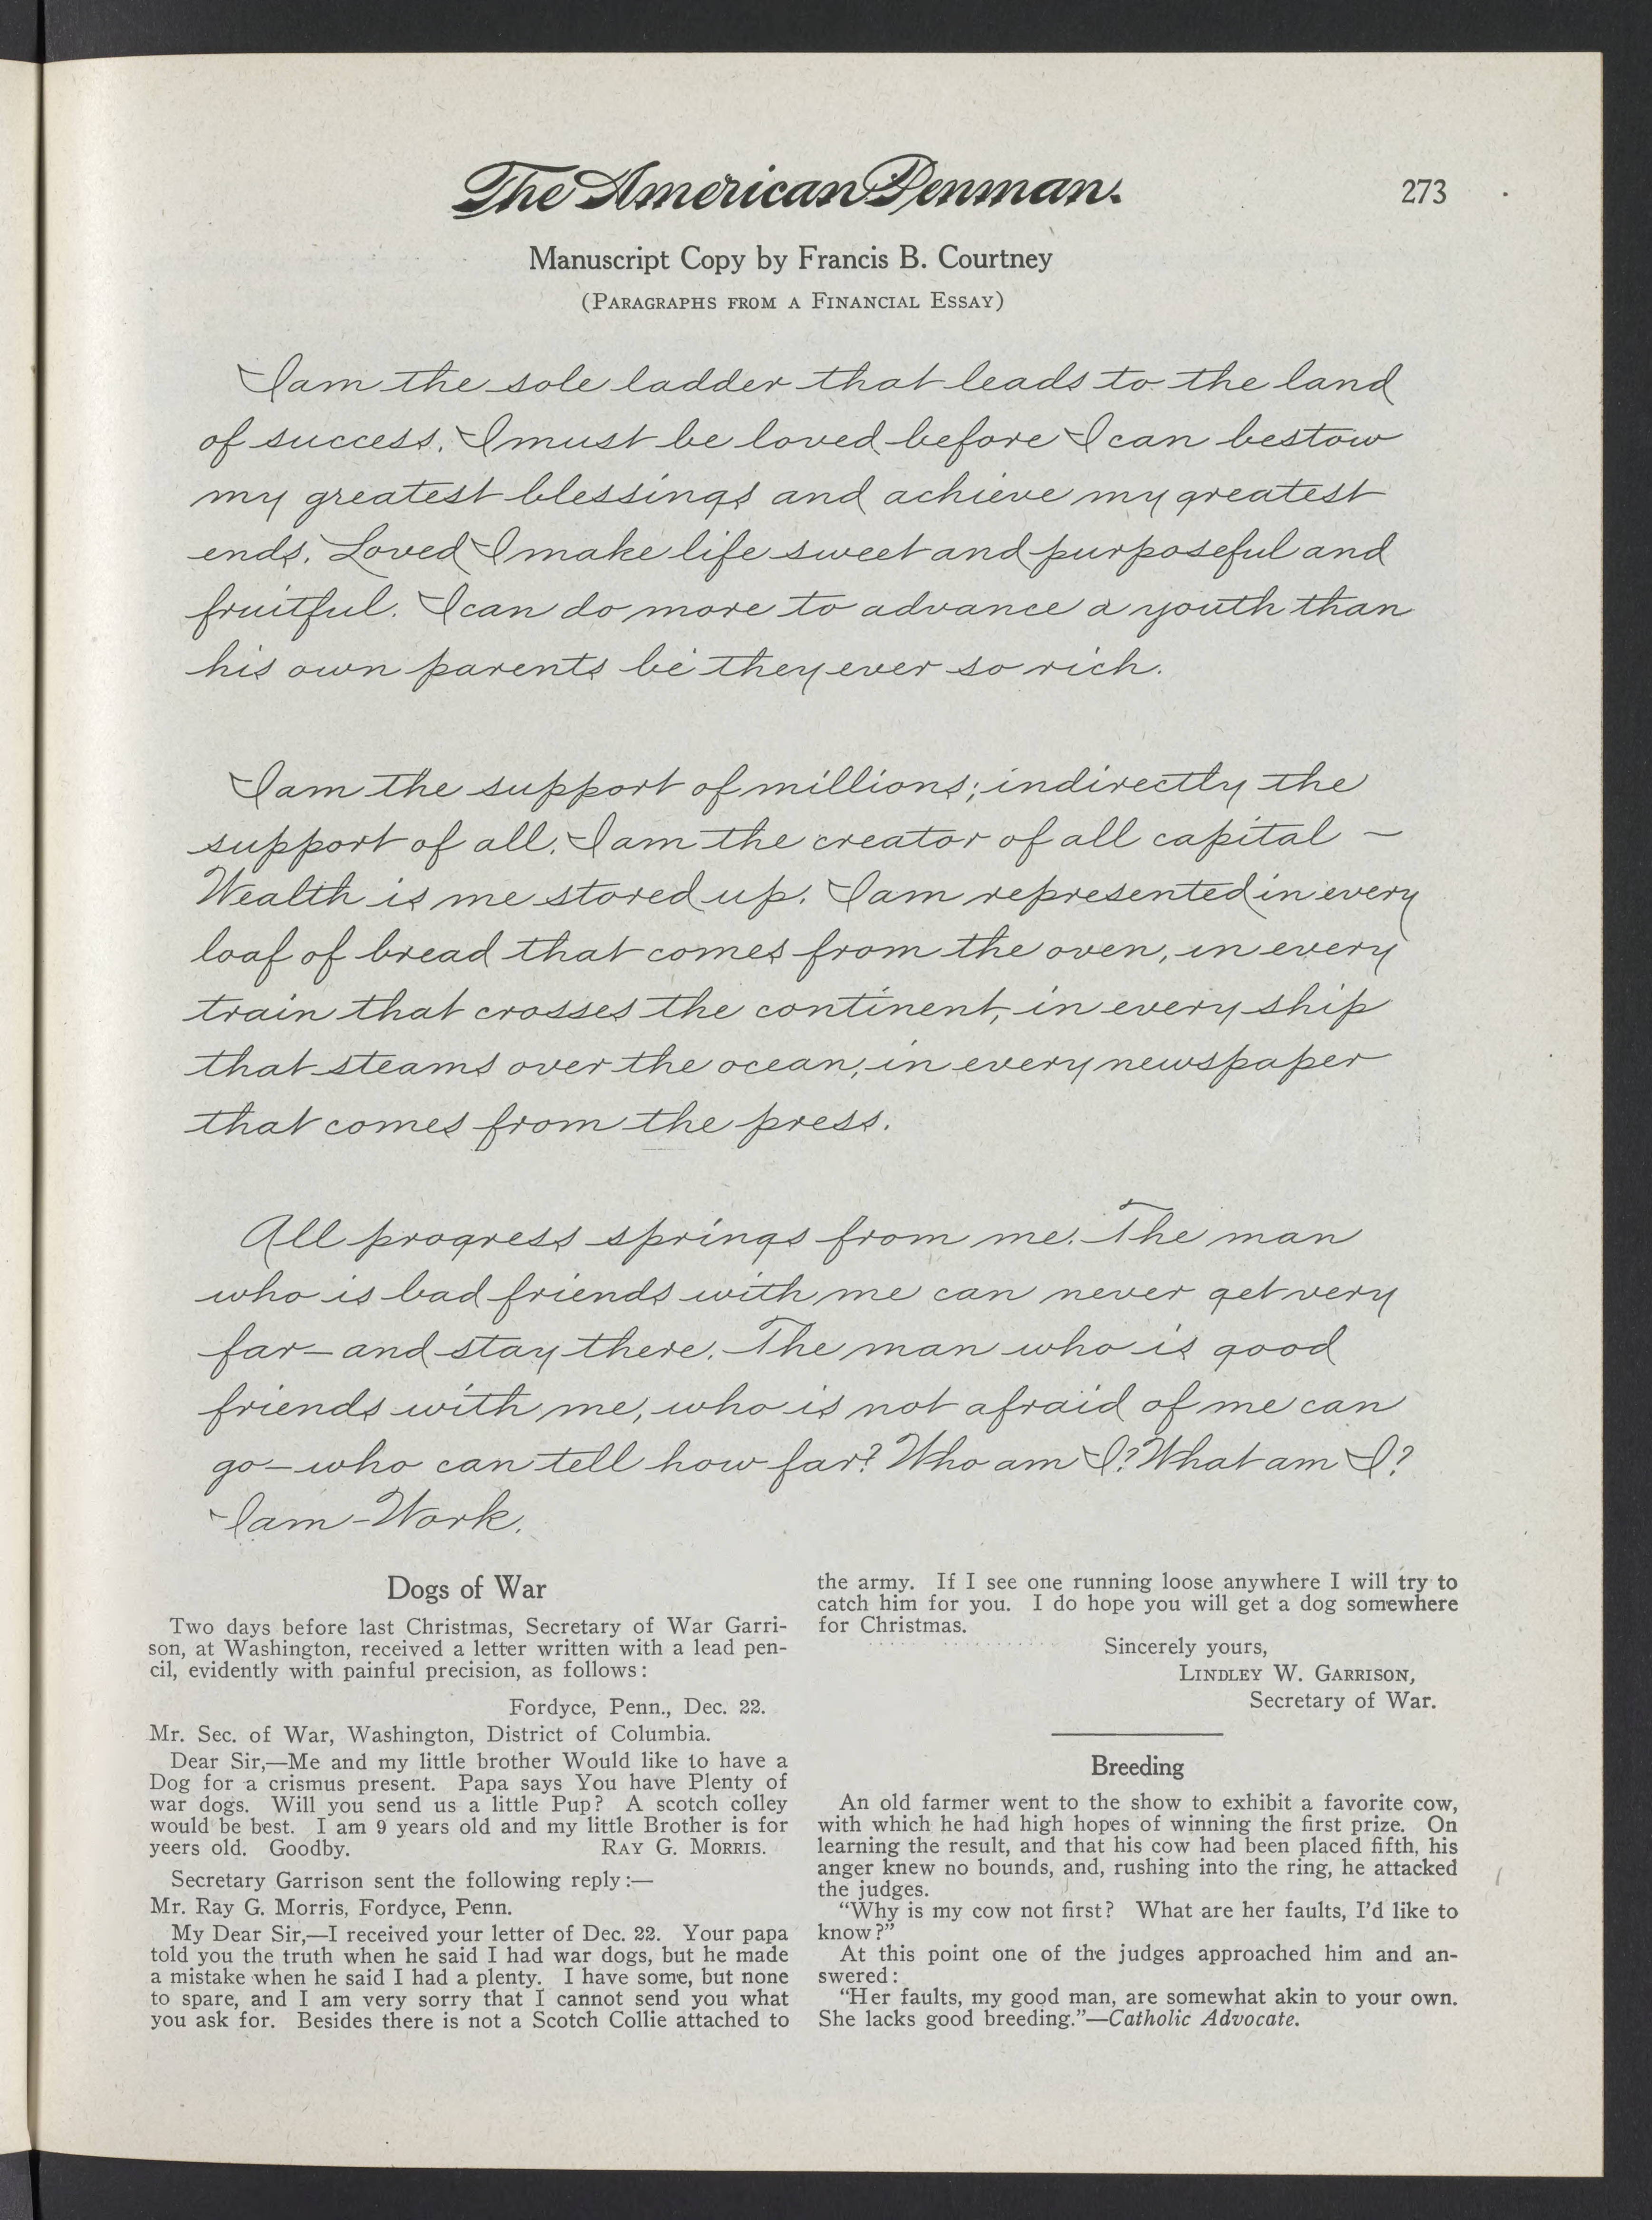 The American Penman.
273
Manuscript Copy by Francis B. Courtney
(Paragraphs from a Financial Essay)
I am the sole ladder that leads to the land
of success. I must be loved before I can bestow
my greatest blessings and achieve my greatest
ends. Loved I make life sweet and purposeful and
fruitful. I can do more to advance a youth than
his own parents be they ever so rich.
I am the support of millions; indirectly the
support of all. I am the creator of all capital —
Wealth is me stored up. I am represented in every
loaf of bread that comes from the oven, in every
train that crosses the continent, in every ship
that steams over the ocean, in every newspaper
that comes from the press.
All progress springs from me. The man
who is bad friends with me can never get very
far—and stay there. The man who is good
friends with me, who is not afraid of me can
go—who can tell how far? Who am I? What am I?
I am—Work.
Dogs of War
Two days before last Christmas, Secretary of War Garri-
son, at Washington, received a letter written with a lead pen-
cil, evidently with painful precision, as follows:
Fordyce, Penn., Dec. 22.
Mr. Sec. of War, Washington, District of Columbia.
Dear Sir,—Me and my little brother Would like to have a
Dog for a crismus present. Papa says You have Plenty of
war dogs. Will you send us a little Pup? A scotch colley
would be best. I am 9 years old and my little Brother is for
yeers old. Goodby. Ray G. Morris.
Secretary Garrison sent the following reply:—
Mr. Ray G. Morris, Fordyce, Penn.
My Dear Sir,—I received your letter of Dec. 22. Your papa
told you the truth when he said I had war dogs, but he made
a mistake when he said I had a plenty. I have some, but none
to spare, and I am very sorry that I cannot send you what
you ask for. Besides there is not a Scotch Collie attached to
the army. If I see one running loose anywhere I will try to
catch him for you. I do hope you will get a dog somewhere
for Christmas.
Sincerely yours,
Lindley W. Garrison,
Secretary of War.
Breeding
An old farmer went to the show to exhibit a favorite cow,
with which he had high hopes of winning the first prize. On
learning the result, and that his cow had been placed fifth, his
anger knew no bounds, and, rushing into the ring, he attacked
the judges.
“Why is my cow not first? What are her faults, I’d like to
know?”
At this point one of the judges approached him and an-
swered:
“Her faults, my good man, are somewhat akin to your own.
She lacks good breeding.”—Catholic Advocate.